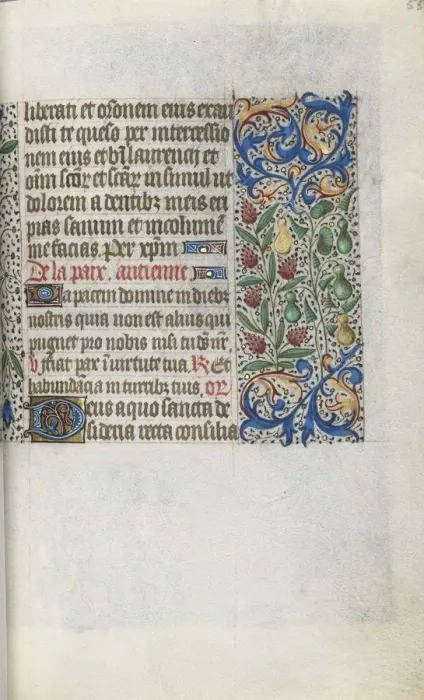 55
liberati et orõnem eius exau
disti te queso per intercessio
nem eius et bti laurencij et
oim scõr et scãr in simul ut
dolorem a dentibz meis eri
pias sanum et incolume
me facias Per xpm
De la paix. antienne
Da pacem domine in diebz
nostris quia non est alius qui
pugnet pro nobis nisi tu ds nr̃.
V fiat pax ĩ virtute tua R Et
habundãcia in turribz tuis. Or
Deus a quo sancta de
sideria recta consilia